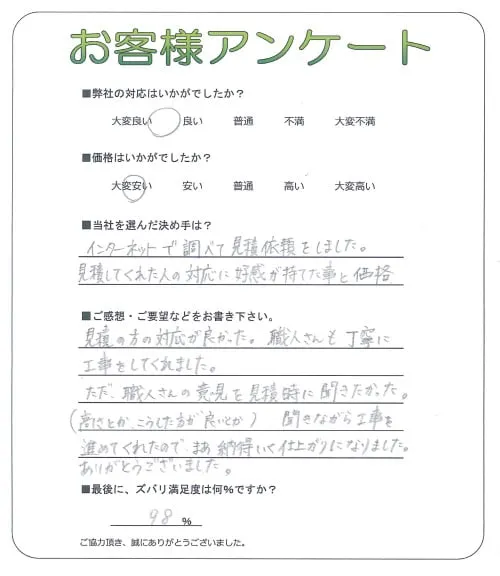 お客様アンケート
■弊社の対応はいかがでしたか？
大変良い 良い 普通 不満 大変不満
■価格はいかがでしたか？
大変安い 安い 普通 高い 大変高い
■当社を選んだ決め手は？
インターネットで調べて見積依頼をしました。
見積してくれた人の対応に好感が持てた事と価格
■ご感想・ご要望などをお書き下さい。
見積の方の対応が良かった。職人さんも丁寧に
工事をしてくれました。
ただ、職人さんの意見を見積時に聞きたかった。
(高さとか、こうした方が良いとか) 聞きながら工事を
進めてくれたので、まあ納得いく仕上がりになりました。
ありがとうございました。
■最後に、ズバリ満足度は何%ですか？
98 %
ご協力頂き、誠にありがとうございました。